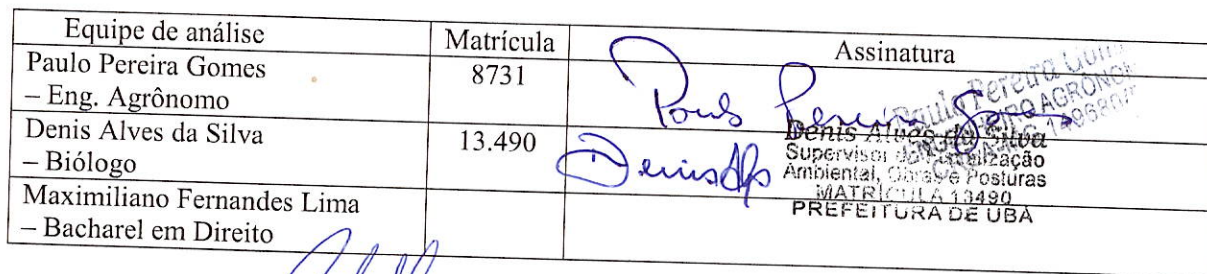 Equipe de análise Matrícula Assinatura
Paulo Pereira Gomes 8731
– Eng. Agrônomo
Paulo Pereira
Paulo Pereira
Denis Alves da Silva 13.490
– Biólogo
Denis
Denis Alves da Silva
Supervisor
Ambiental, Obras e Posturas
MATRÍCULA 13490
PREFEITURA DE UBÁ
Maximiliano Fernandes Lima
– Bacharel em Direito